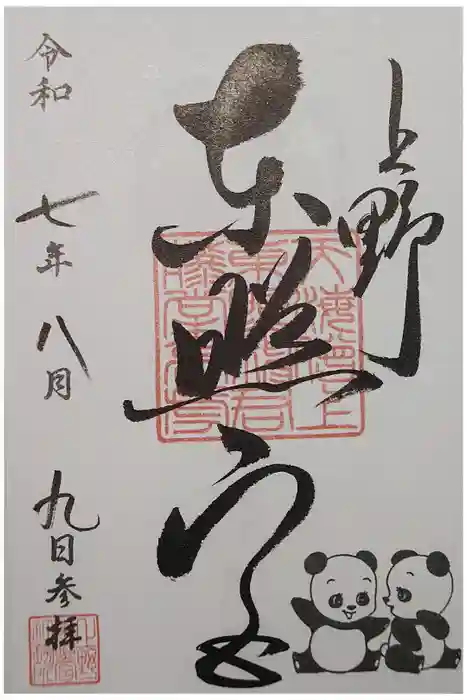 上野
東照宮
令和七年八月九日参拝